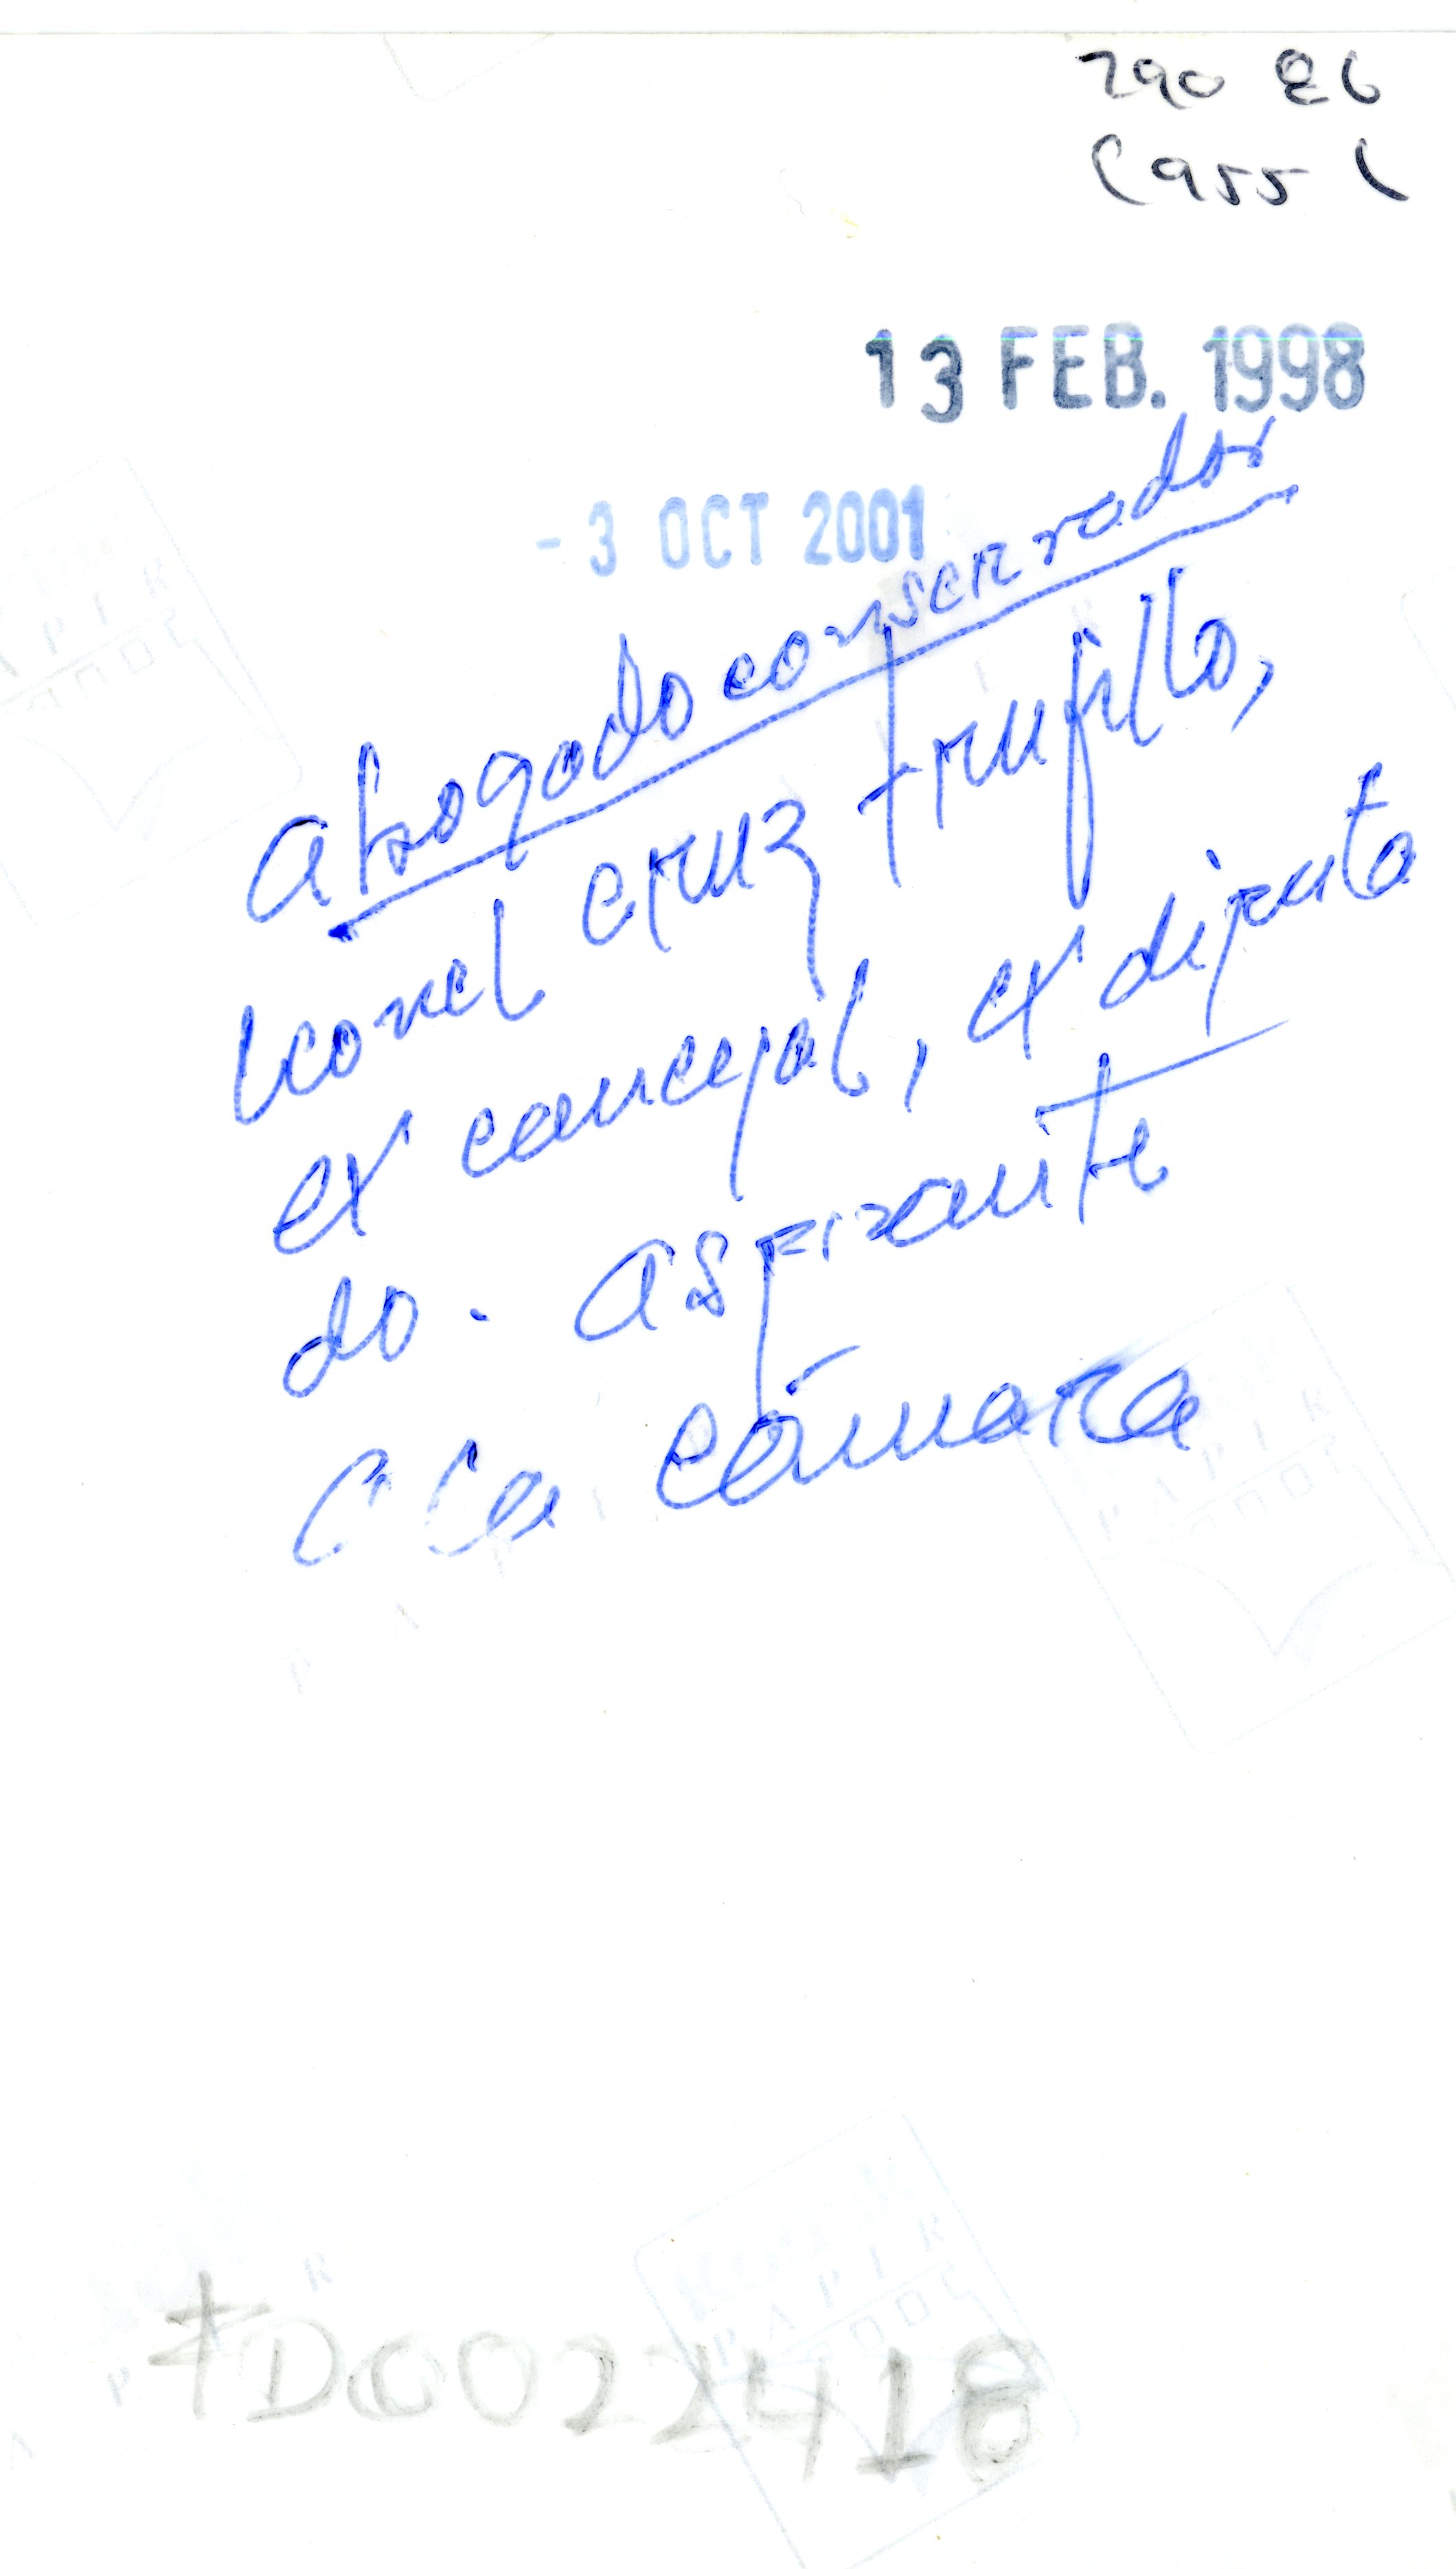 790 26
(955 (
13 FEB. 1998
- 3 OCT 2001
abogado conservador
Leonel Cruz Trujillo,
ex concejal, ex diputa
do. aspirante
a la cámara
FD0022418